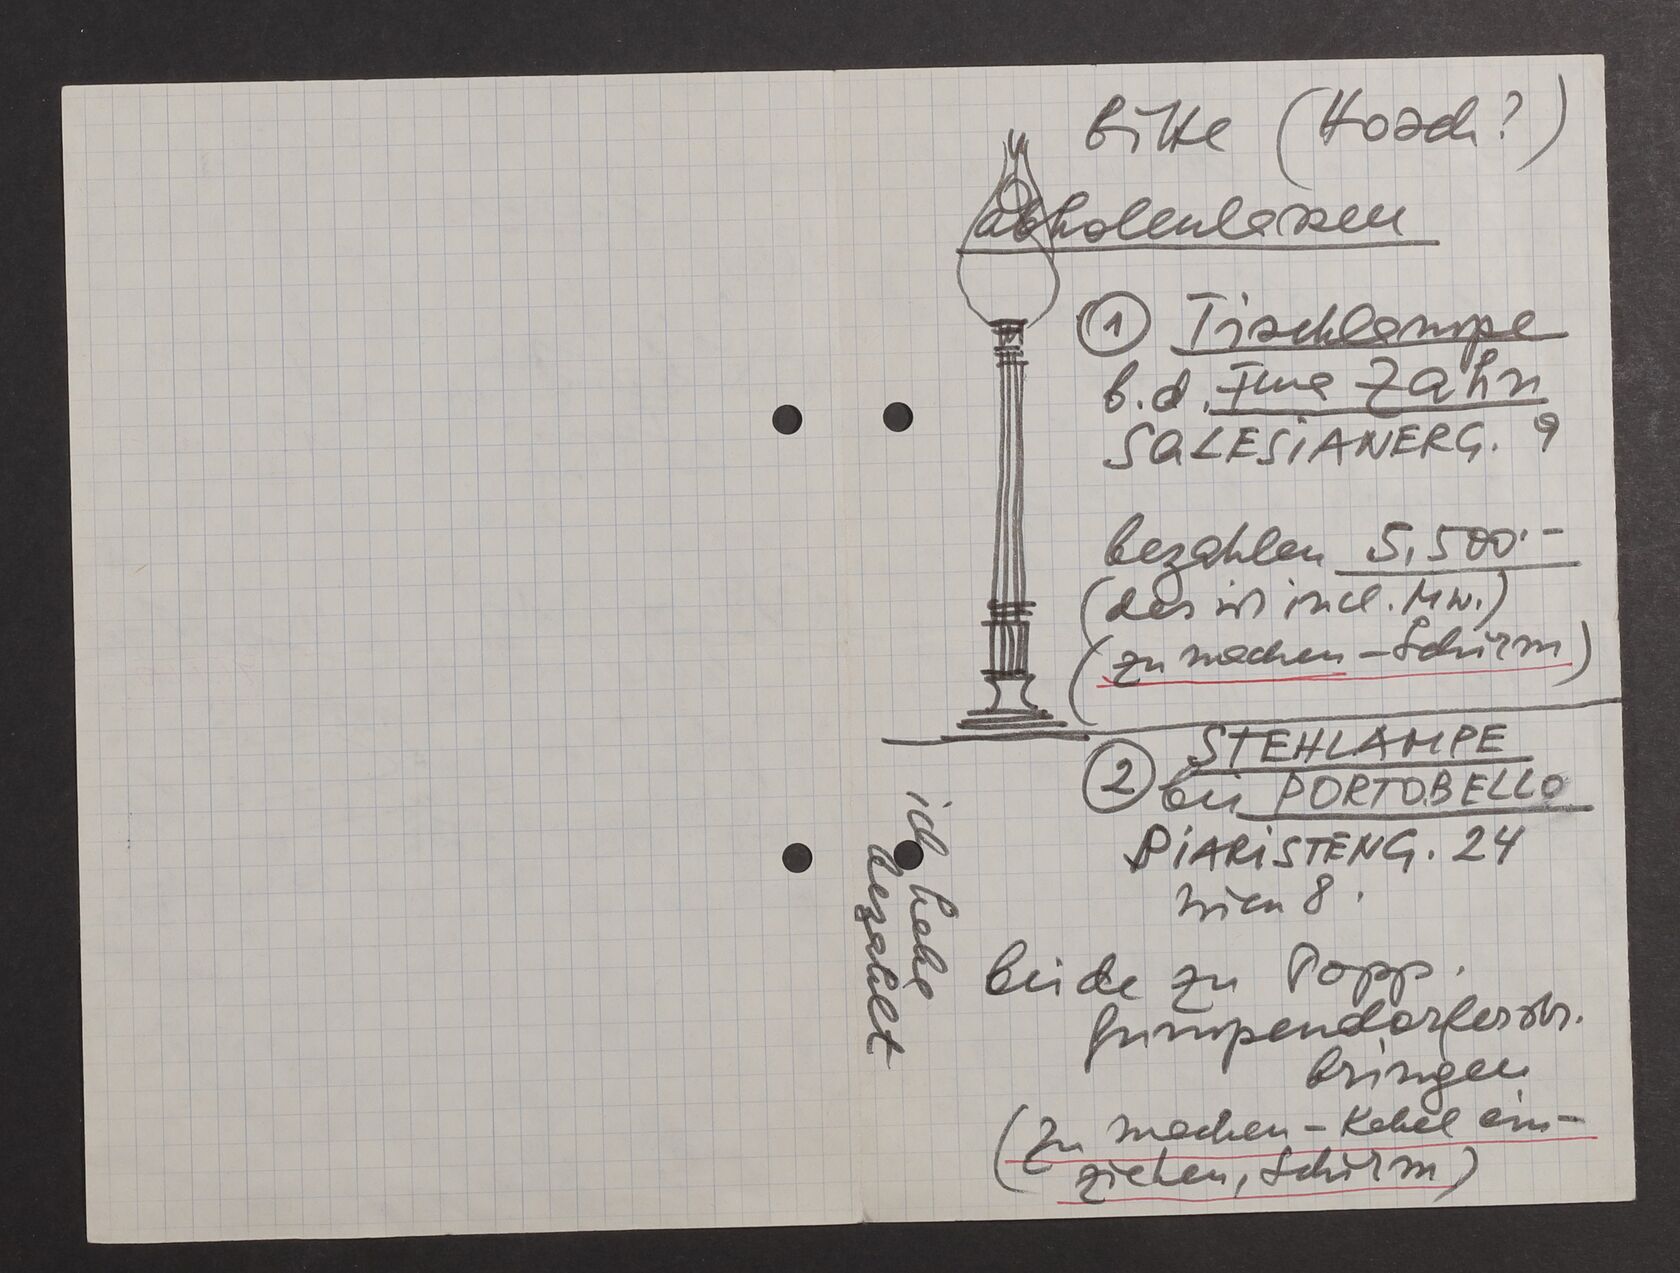 bitte (Hosch?)
abholenlassen
① Tischlampe
b.d. Fune Zahn
SALESIANERG. 9
bezahlen 5,500.-
(das ist incl. MW.)
(zu machen - Schirm)
② STEHLAMPE
bei PORTOBELLO
PIARISTENG. 24
Wien 8.
ich habe
bezahlt
beide zu Popp.
Gumpendorferstr.
bringen
(zu machen - Kabel ein-
ziehen, Schirm)